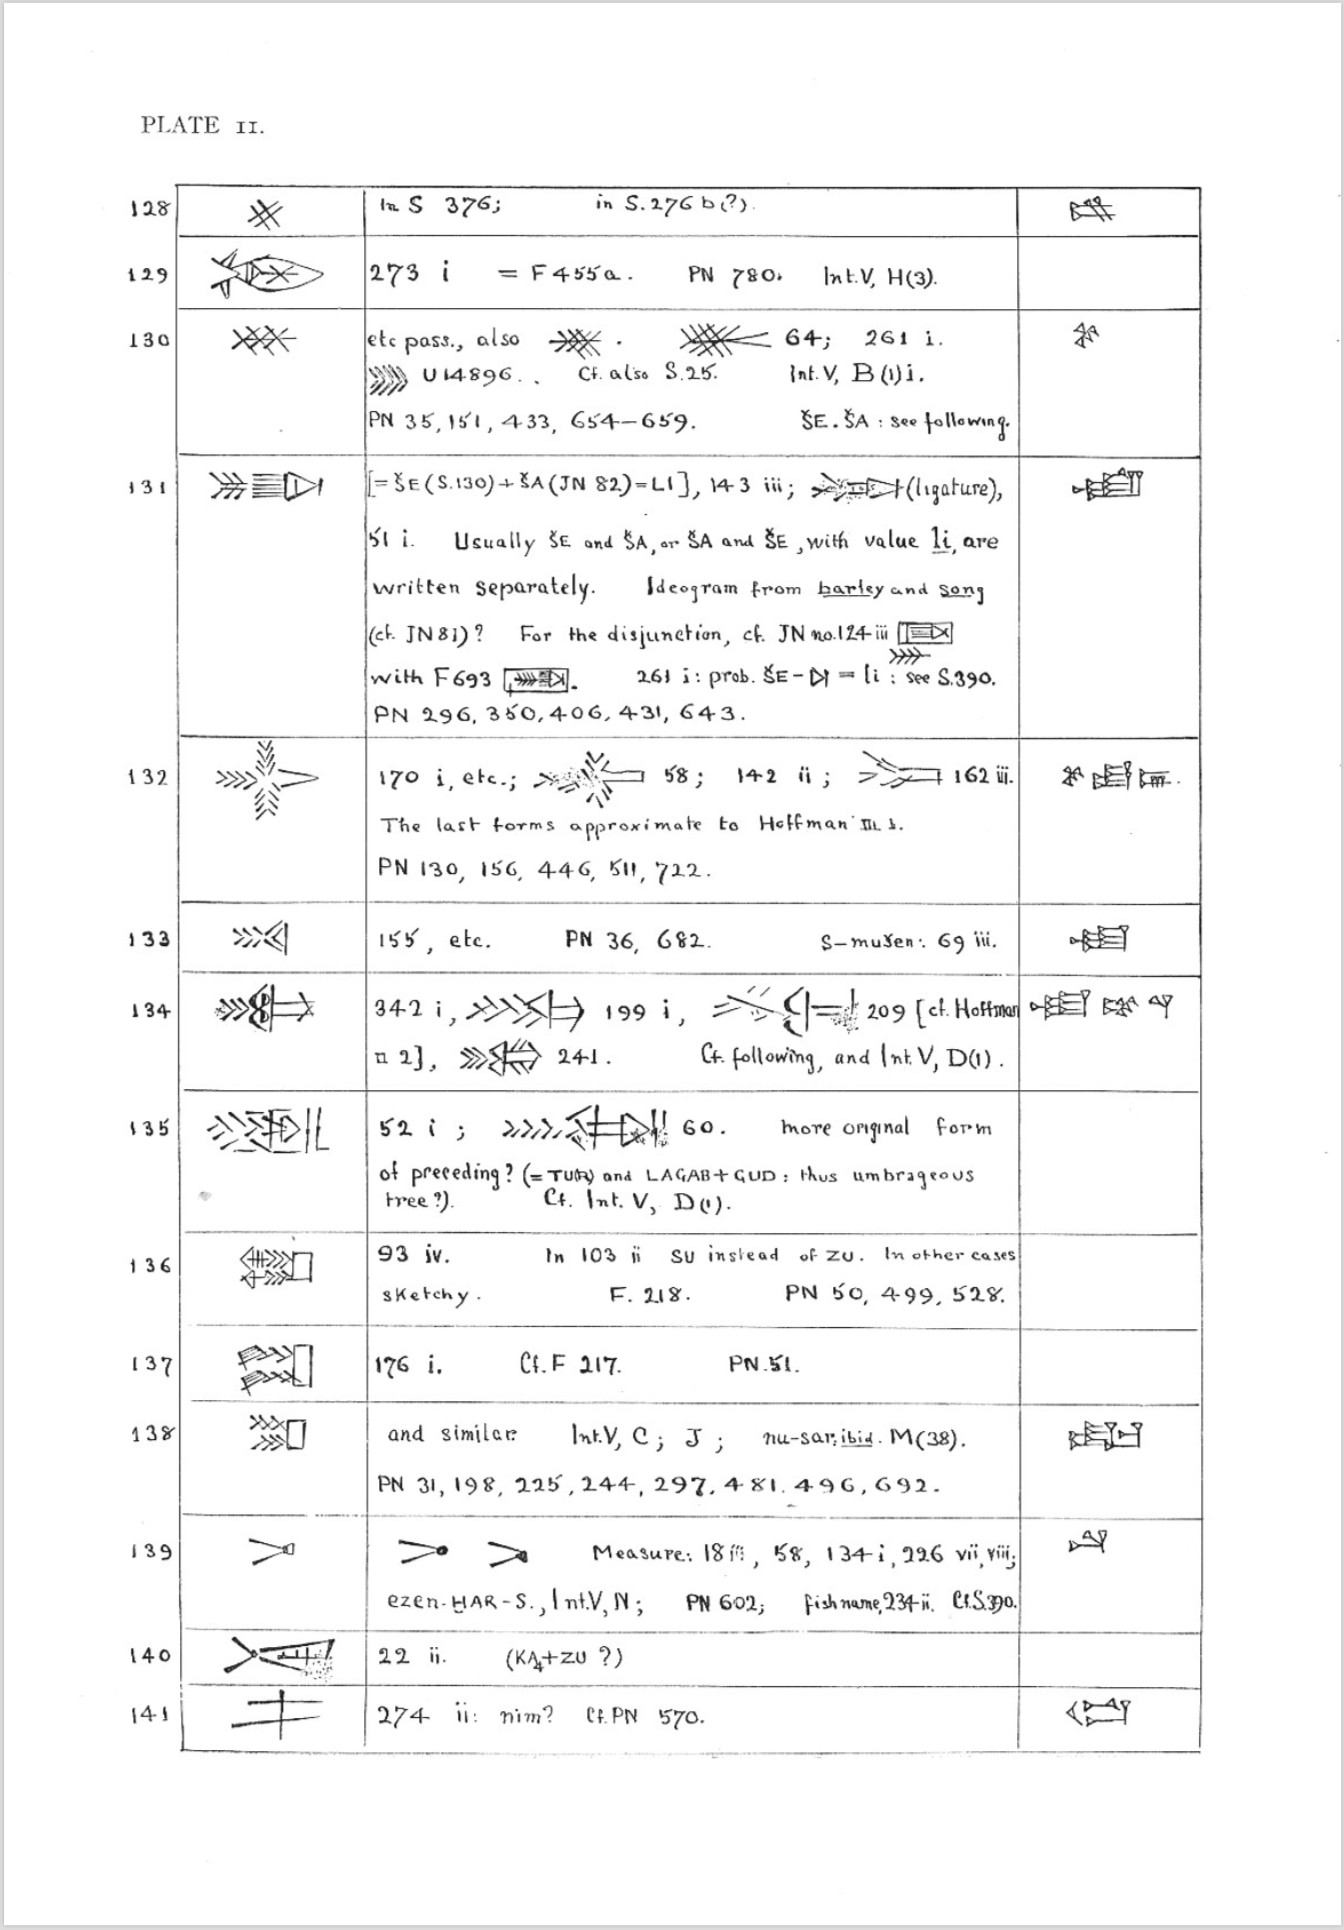 PLATE II.
128 In S 376; in S.276 b(?).
129 273 i = F 455a. PN 780. Int.V, H(3).
130 etc pass., also . 64; 261 i.
U 14896.. Cf. also S.25. Int.V, B(1)i.
PN 35, 151, 433, 654–659. ŠE.ŠA: see following.
131 [= ŠE(S.130)+ŠA(JN 82)=LI], 143 iii; (ligature),
51 i. Usually ŠE and ŠA, or ŠA and ŠE, with value li, are
written separately. Ideogram from barley and song
(cf. JN 81)? For the disjunction, cf. JN no.124 iii
with F 693 . 261 i: prob. ŠE– = li: see S.390.
PN 296, 350, 406, 431, 643.
132 170 i, etc.; 58; 142 ii; 162 iii.
The last forms approximate to Hoffman
PN 130, 156, 446, 511, 722.
133 155, etc. PN 36, 682. S–mušen: 69 iii.
134 342 i, 199 i, 209 [cf. Hoffman
n 2], 241. Cf. following, and Int.V, D(1).
135 52 i; 60. more original form
of preceding? (= TU(R) and LAGAB+GUD: thus umbrageous
tree?). Cf. Int. V, D(1).
136 93 iv. In 103 ii SU instead of ZU. In other cases
sketchy. F. 218. PN 50, 499, 528.
137 176 i. Cf. F 217. PN.51.
138 and similar: Int.V, C; J; nu-sar, ibid. M(38).
PN 31, 198, 225, 244, 297, 481, 496, 692.
139 Measure: 18 iii, 58, 134 i, 226 vii, viii;
ezen-ḪAR-S., Int.V, N; PN 602; fish name, 234 ii. Cf.S.390.
140 22 ii. (KA₄+ZU ?)
141 274 ii: nim? Cf.PN 570.